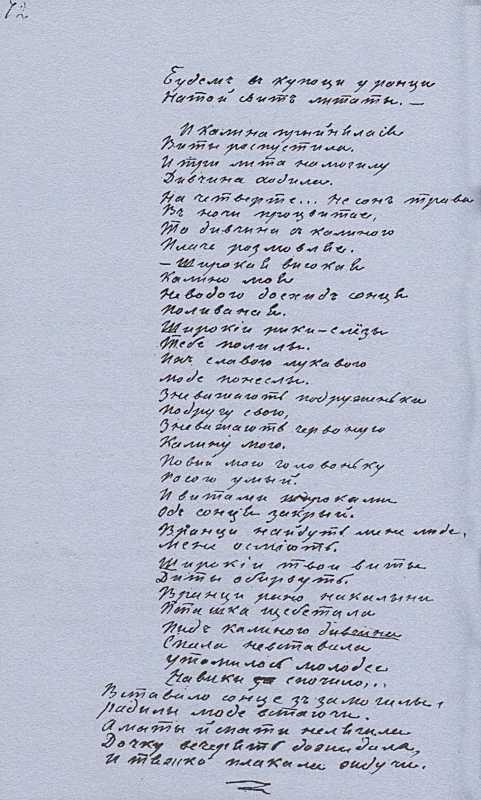 72
Будемъ въ купоци у ранци
Натой свитъ литаты. —
И калина прыйнялася
Виты роспустила.
И тры лита на могилу
Дивчина ходила.
На четверте... не сонъ трава
Въ ночи процвитае,
То дивчина съ калиною
Плаче розмовляе.
— Широкая високая
Калино моя
Неводою досхидъ сонця
Поливаная.
Широкіи рики-слёзы
Тебе полилы.
Ихъ славою лукавою
люде понеслы.
Зневажають подруженьки
Подругу свою,
Зневажають червоную
Калину мою.
Повий мою головоньку
росою умый.
И витами широкими
Одъ сонця закрый.
Вранци найдутъ мене люде,
Мене осміють.
Широкіи твои виты
Диты обирвуть.
Вранци рано на калыни
Пташка щебетала
Пидъ калиною дивчина
Спала невставала
Утомилось молодее
Навики спочило...
Вставало сонце зъ замогилы,
радилы люде встаючи.
А маты й спати нелягила
Дочку вечерять дожидала,
И тяжко плакала ждучи.